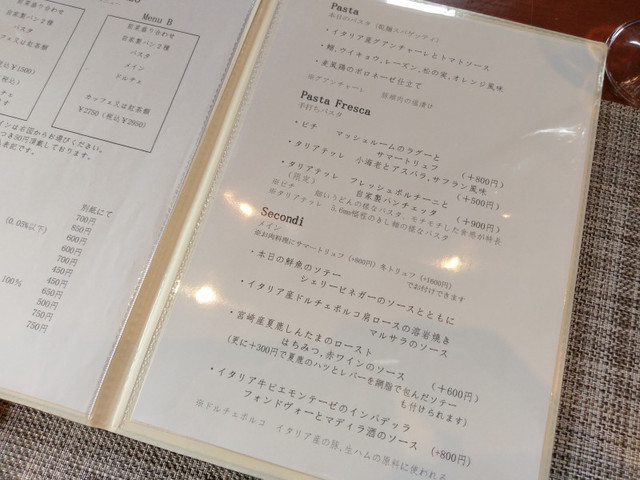 Menu B
前菜盛り合わせ
自家製パン2種
パスタ
メイン
ドルチェ
カッフェ又は紅茶類
¥2750（税込¥2950）
別紙にて
700円
850円
600円
(0.05%以下) 600円
700円
450円
450円
100% 650円
500円
750円
750円
Pasta
本日のパスタ（乾麺スパゲッティ）
・イタリア産グアンチャーレとトマトソース
・鰯,ウイキョウ,レーズン,松の実,オレンジ風味
・麦風鶏のボロネーゼ仕立て
※グアンチャーレ 豚頬肉の塩漬け
Pasta Fresca
手打ちパスタ
・ピチ マッシュルームのラグーと
サマートリュフ （＋800円）
・タリアテッレ 小海老とアスパラ,サフラン風味
（＋500円）
・タリアテッレ フレッシュポルチーニと
（限定） 自家製パンチェッタ （＋900円）
※ピチ 細いうどんの様なパスタ、モチモチした食感が特長
※タリアテッレ 5,6mm幅程のきし麺の様なパスタ
Secondi
メイン
※お肉料理にサマートリュフ（+800円）冬トリュフ（+1600円）
でお付けできます
・本日の鮮魚のソテー
シェリービネガーのソースとともに
・イタリア産ドルチェポルコ肩ロースの溶岩焼き
マルサラのソース
・宮崎産夏鹿しんたまのロースト
はちみつ,赤ワインのソース （＋600円）
（更に＋300円で夏鹿のハツとレバーを網脂で包んだソテー
も付けられます）
・イタリア牛ピエモンテーゼのインパデッラ
フォンドヴォーとマディラ酒のソース （+800円）
※ドルチェポルコ イタリア産の豚,生ハムの原料に使われる